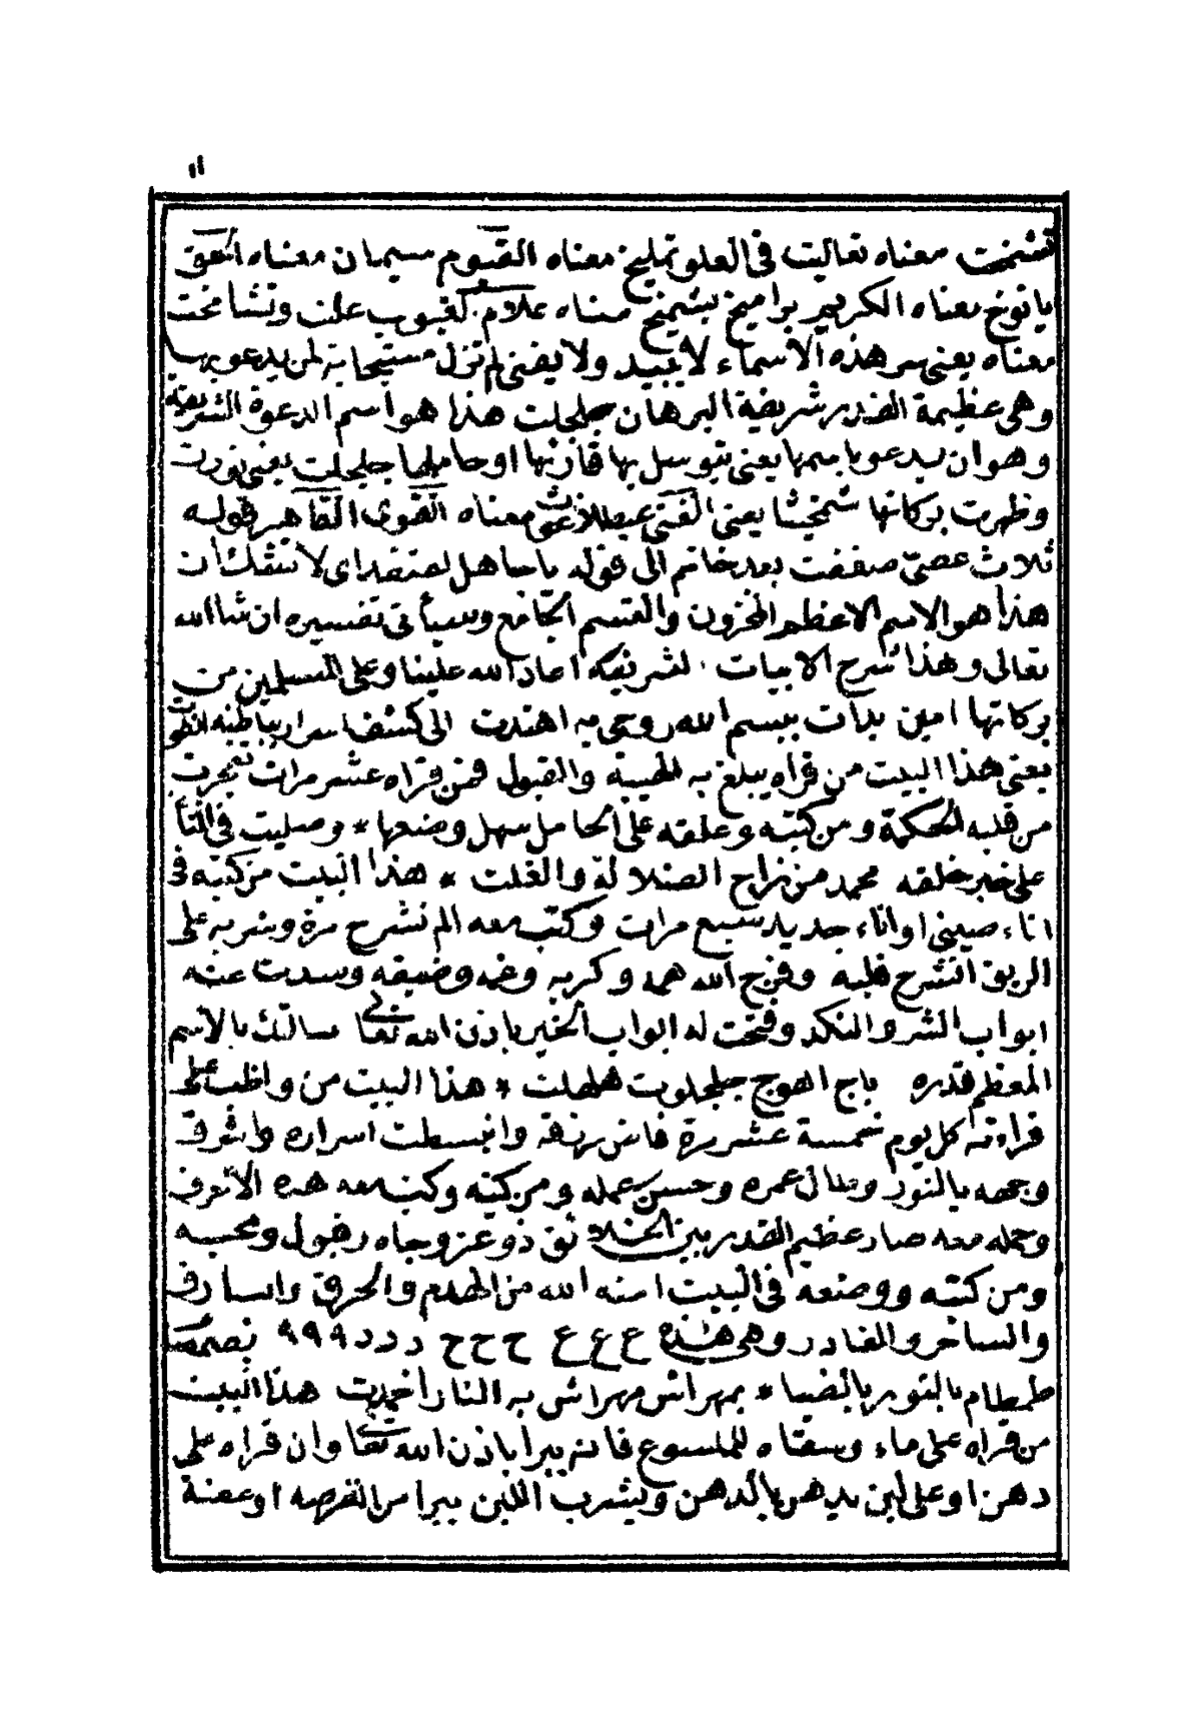 ١١
تشمخت معناه تعاليت فى العلو تمليخ معناه القيوم سيمان معناه الحق
يانوخ معناه الكريم براميخ بشميخ معناه علام الغيوب علت وتشامخت
معناه يعنى سر هذه الاسماء لا يبيد ولا يفنى لم تزل مستجابة لمن يدعو بها
وهى عظيمة القدر شريفة البرهان جلجلت هذا هو اسم الدعوة الشريفة
وهو ان يدعو باسمها يعنى يتوسل بها قارئها او حاملها جلجلت يعنى نورت
وظهرت بركاتها شمخيثا يعنى الغنى معناه القوى القاهر قوله
ثلاث عصىّ صففت بعد خاتم الى قوله يا جاهل لا تشك ان
هذا هو الاسم الاعظم المخزون والقسم الجامع وسيأتى تفسيره ان شا الله
تعالى وهذا شرح الابيات الشريفة اعاد الله علينا وعلى المسلمين من
بركاتها امين بدأت ببسم الله روحى به اهتدت الى كشف اسرار بباطنه انطوت
يعنى هذا البيت من قرأه يبلغ به الهيبة والقبول فمن قرأه عشر مرات تفجرت
من قلبه الحكمة ومن كتبه وعلقه على الحامل سهل وضعها * وصليت فى الثا
على خير خلقه محمد من زاح الضلالة والغلت * هذا البيت من كتبه فى
اناء صينى او اناء جديد سبع مرات وكتب معه الم نشرح مرة وشربه على
الريق انشرح قلبه وفرج الله همه وكربه وغمه وضيقه وسدت عنه
ابواب الشر والنكد وفتحت له ابواب الخير باذن الله تعالى سالتك بالاسم
المعظم قدره باج اهوج جلجلوت هلهلت * هذا البيت من واظب على
قراءته كل يوم خمسة عشر مرة فاض رزقه وانبسطت اسراره واشرق
وجهه بالنور وطال عمره وحسن عمله ومن كتبه وكتب معه هذه الأحرف
وحمله معه صار عظيم القدر بين الخلائق ذو عز وجاه وقبول ومحبه
ومن كتبه ووضعه فى البيت امنه الله من الهدم والحرق والسارق
والساحر والغادر وهى هذه ع ع ع ح ح ح د د د ٩٩٩
طمطام بالنور بالضياء * بمهراش مهراش به النار أخمدت هذا البيت
من قرأه على ماء وسقاه للملسوع فانه يبرأ باذن الله تعالى وان قرأه على
دهن او على لبن يدهن بالدهن ويشرب اللبن يبرا من القرصه او عضة